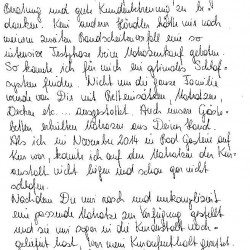 Beratung und gute Kundenbetreuung zu be-
danken. Kein anderer Händler hätte mir nach
meinem zweiten Bandscheibenvorfall eine so
intensive Testphase beim Matratzenkauf geboten.
So konnte ich für mich ein optimales Schlaf-
system finden. Nicht nur die ganze Familie
wurde von Dir mit Betteinsätzen, Matratzen,
Decken etc.... ausgestattet. Auch unsere Gäste-
betten erhielten Matratzen aus Deiner Hand.
Als ich im November 2014 in Bad Gastein auf
Kur war, konnte ich auf den Matratzen der Kur-
anstalt nicht liegen und schon gar nicht
schlafen.
Nachdem Du mir rasch und unkompliziert
eine passende Matratze zur Verfügung gestellt
und sie mir sogar in die Kuranstalt nach-
geliefert hast, war mein Kuraufenthalt gerettet.